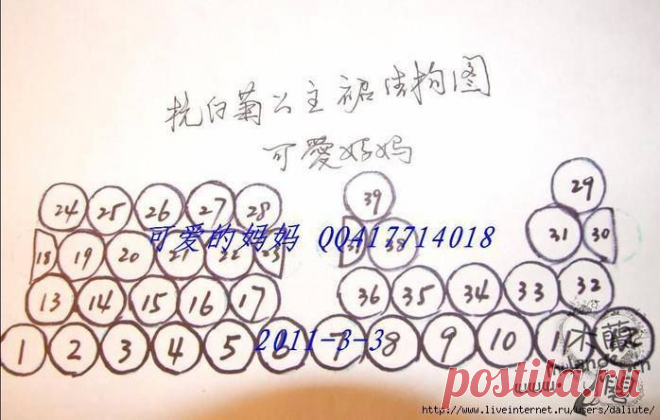 杭白菊公主裙结构图
可爱妈妈
39 29
24 25 26 27 28
可爱的妈妈 QQ417714018
18 19 20 21 22 23 37 38 31 30
13 14 15 16 17 36 35 34 33 32
2011-3-3
1 2 3 4 5 6 7 8 9 10 11
postila.ru
http://www.liveinternet.ru/users/daliute/